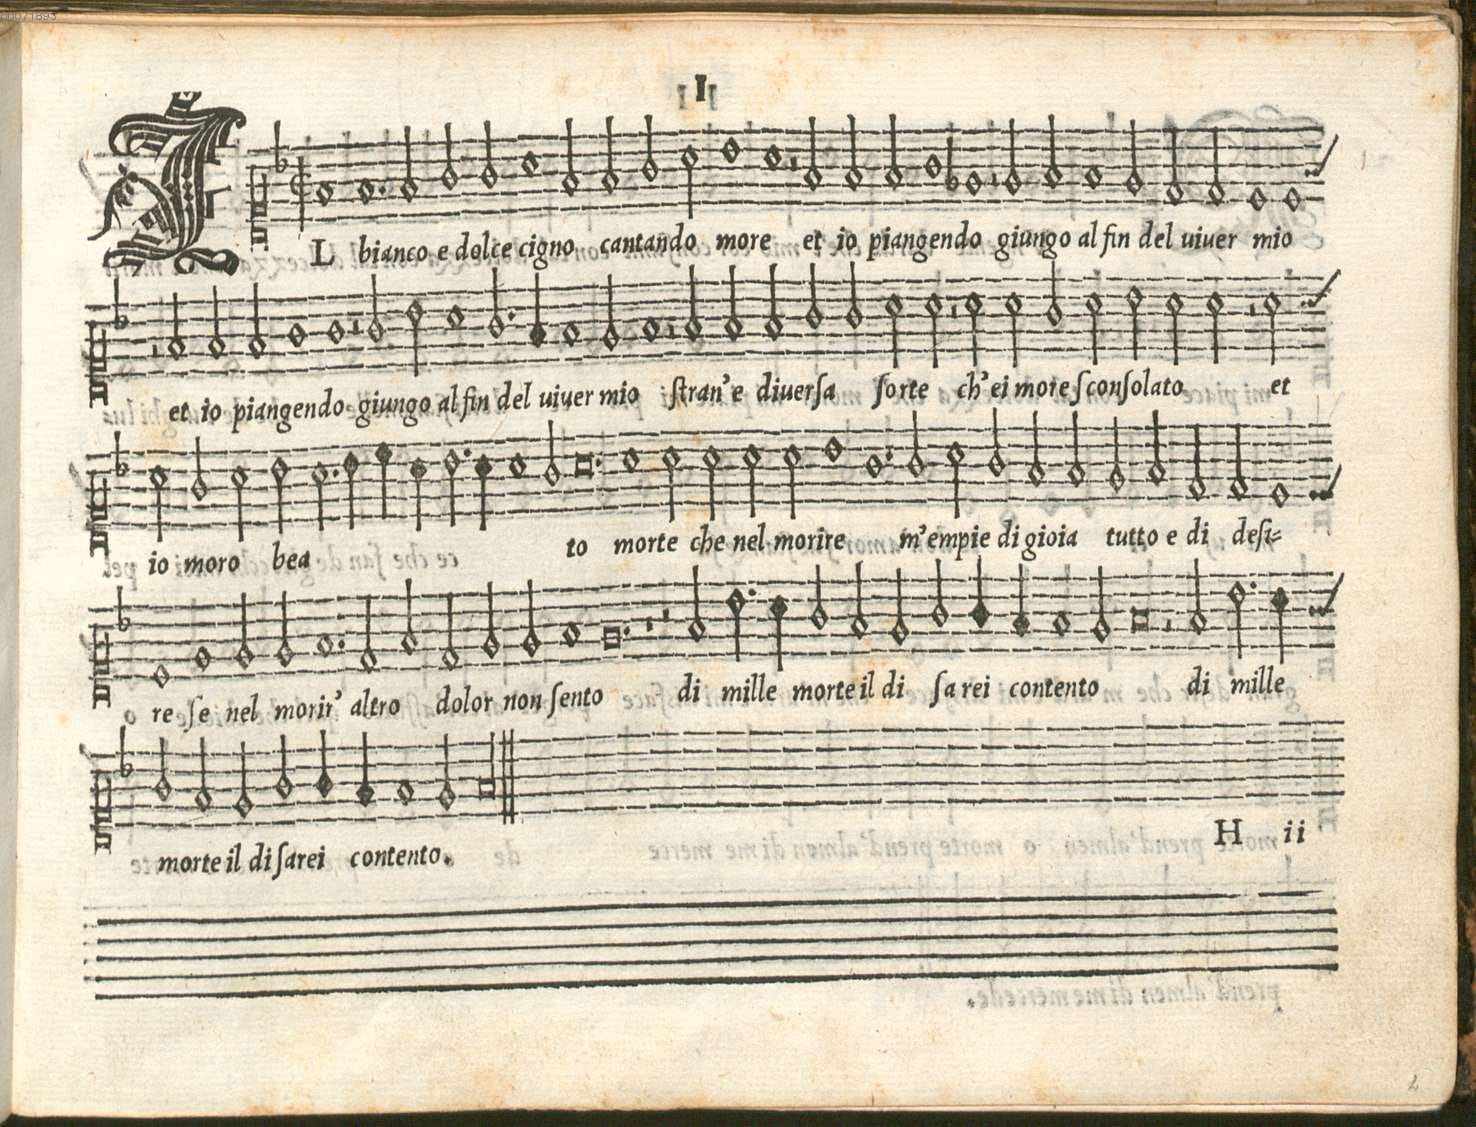 I
IL bianco e dolce cigno cantando more et io piangendo giungo al fin del uiuer mio
et io piangendo giungo al fin del uiuer mio ſtran' e diuerſa ſorte ch' ei more ſconſolato et
io moro bea to morte che nel morire m'empie di gioia tutto e di deſi=
re ſe nel morir' altro dolor non ſento di mille morte il di ſa rei contento di mille
morte il di ſarei contento.
H ii
2